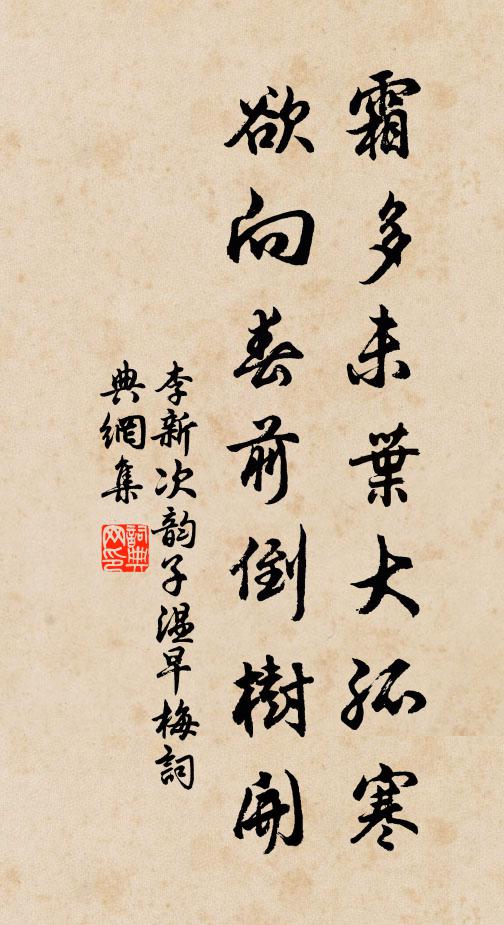 霜多未葉大孤寒
欲向春前倒樹開
李新次韵子温早梅詞
典網集
詞典網印